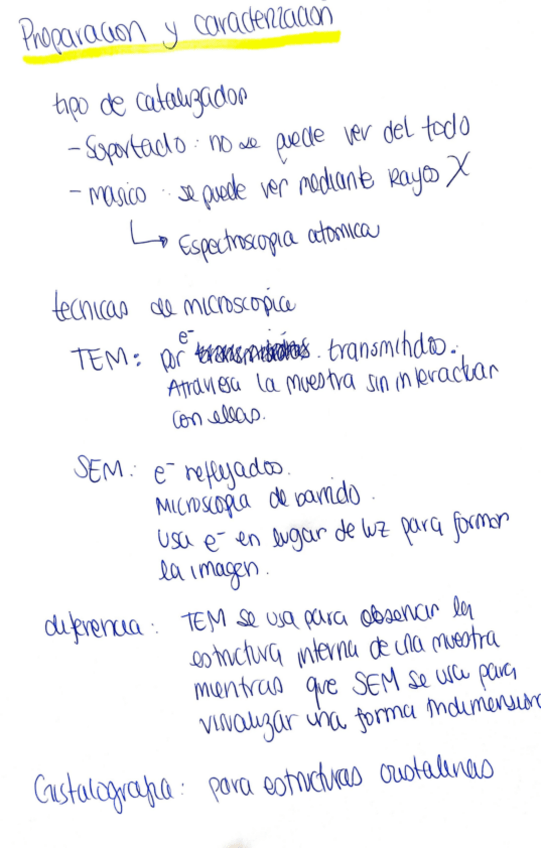 Preparacion y caracterizacion
tipo de catalizador
- Soportado: no se puede ver del todo
- masico: se puede ver mediante Rayos X
↳ Espectroscopia atomica
tecnicas de microscopia
TEM: por e⁻ transmitidos.
Atraviesa la muestra sin interactuar
con ellas.
SEM: e⁻ reflejados.
Microscopia de barrido.
Usa e⁻ en lugar de luz para formar
la imagen.
diferencia: TEM se usa para observar la
estructura interna de una muestra
mientras que SEM se usa para
visualizar una forma
Cristalografia: para estructuras cristalinas